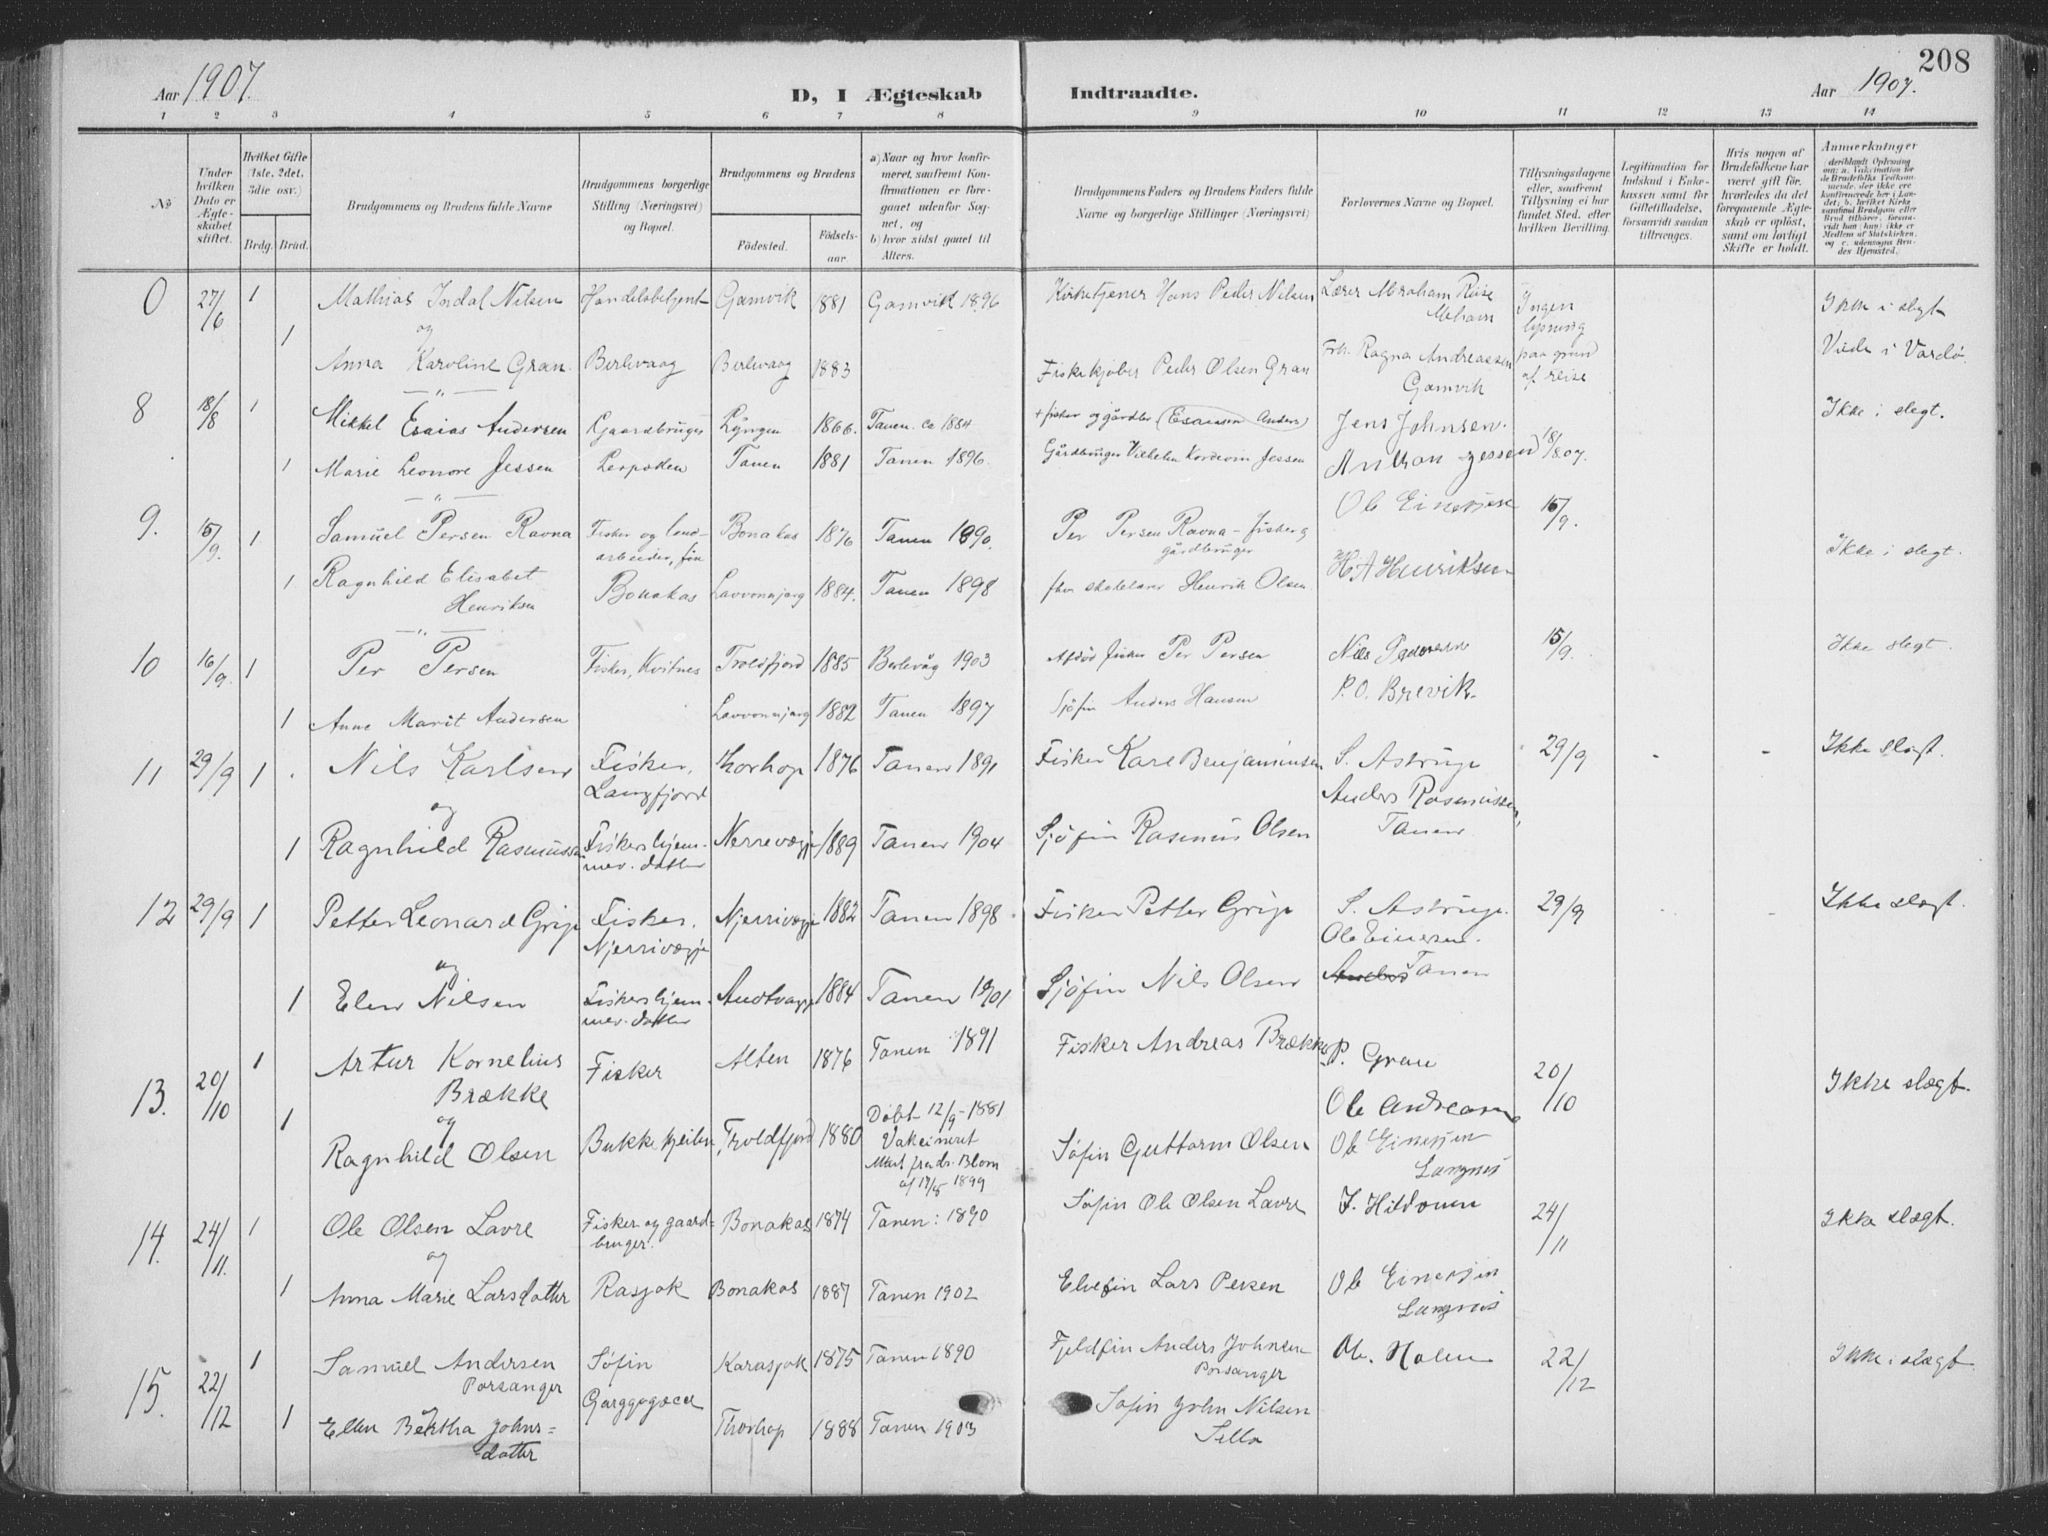 208
Aar 1907.
D, I Ægteskab Indtraadte.
Aar 1907.
1 2 3 4 5 6 7 8 9 10 11 12 13 14
No
Under hvilken Dato er Ægteskabet stiftet.
Hvilket Gifte (1ste, 2det, 3die osv.)
Brdg. Brud.
Brudgommens og Brudens fulde Navne
Brudgommens borgerlige Stilling (Næringsvei) og Bopæl.
Brudgommens og Brudens
Fødested.
Fødselsaar.
a) Naar og hvor konfirmeret, saafremt Konfirmationen er foregaaet udenfor Sognet, og
b) hvor sidst gaaet til Alters.
Brudgommens Faders og Brudens Faders fulde Navne og borgerlige Stillinger (Næringsvei)
Forlovernes Navne og Bopæl.
Tillysningsdagene eller, saafremt Tillysning ei har fundet Sted, efter hvilken Bevilling.
Legitimation for Indskud i Enkekassen samt for Giftetilladelse, forsaavidt saadan tiltrænges.
Hvis nogen af Brudefolkene har været gift før, hvorledes da det foregaaende Ægteskab er opløst, samt om lovligt Skifte er holdt.
Anmerkninger
0 27/6 1 Mathias Indal Nilsen Handelsbetjent Gamvik 1881 Gamvik 1896 Kirketjener Hans Peder Nilsen Lærer Abraham Riise Mehavn Ingen lysning paa grund af reise Ikke i slegt
og
1 Anna Karoline Gran. Berlevaag Berlevaag 1883 Fiskekjøber Peder Olsen Gran Frk. Ragna Andreassen Gamvik Viede i Vardø.
8 18/8 1 Mikkel Esaias Andersen Gaardbruger Lyngen 1866. Tanen ca 1884 + fisker og gårdbr (Esaiassen Anders) Jens Johnsen. 18/8 07. Ikke i slegt.
1 Marie Leonore Jessen Lerpollen Tanen 1881 Tanen 1896. Gårdbruger Vilhelm Jessen
9. 15/9. 1 Samuel Persen Ravna Fisker og landarbeider, fin Bonakas 1876 Tanen 1890. Per Persen Ravna - fisker og gårdbruger Ole Einersen 15/9. Ikke i slegt.
1 Ragnhild Elisabet Henriksen Bonakas Lavvonnjarg 1884. Tanen 1898 Henrik Olsen H A Henriksen
10 16/9. 1 Per Persen Fisker, Kvitnes Troldfjord 1885 Berlevåg 1903 Afdød fisker Per Persen Nils Pedersen 15/9. Ikke slegt.
1 Anne Marit Andersen Lavvonnjarg 1882 Tanen 1897 Sjöfin Anders Hansen P. O. Brevik.
11 29/9 1 Nils Karlsen Fisker, Langfjord Thorhop 1876 Tanen 1891 Fisker Karl Benjaminsen S. Astrup 29/9 - - Ikke slegt.
og
1 Ragnhild Rasmussen Fiskers hjemmev. datter Nerrevægge 1889 Tanen 1904 Sjöfin Rasmus Olsen Anders Rasmussen, Tanen
12 29/9 1 Petter Leonard Grip Fisker, Njerrivægje Njerrivægje 1882 Tanen 1898. Fisker Petter Grip S. Astrup. 29/9 Ikke slægt.
og
1 Elen Nilsen Fiskers hjemmev. datter Austvagge 1884 Tanen 1901 Sjöfin Nils Olsen Ole Einersen. Tanen
13. 20/10 1 Artur Kornelius Brække Fisker Alten 1876 Tanen 1891 Fisker Andreas Brække P. Gran 20/10 Ikke slægt.
og
1 Ragnhild Olsen Bukkekjeilen Troldfjord 1880 Döbt 12/9-1881 Vakcineret Attest fra dr. Blom af 17/5 1899 Söfin Guttorm Olsen Ole Andreasen
14. 24/11. 1 Ole Olsen Lavre Fisker og gaardbruger. Bonakas 1874 Tanen: 1890 Söfin Ole Olsen Lavre Ole Einersen Langnes J. Hildonen 24/11 Ikke slægt.
og
1 Anna Marie Larsdatter Rasjok Bonakas 1887 Tanen 1902 Elvefin Lars Persen Ole Einersen Langnes
15. 22/12 1 Samuel Andersen Porsanger Söfin Karasjok 1875 Tanen 1890 Fjeldfin Anders Johnsen Porsanger Ole. Holm 22/12 Ikke i slægt
1 Ellen Beretha Johnsdatter Garggogæcce Thorhop 1888 Tanen 1903 Söfin John Nilsen Silla